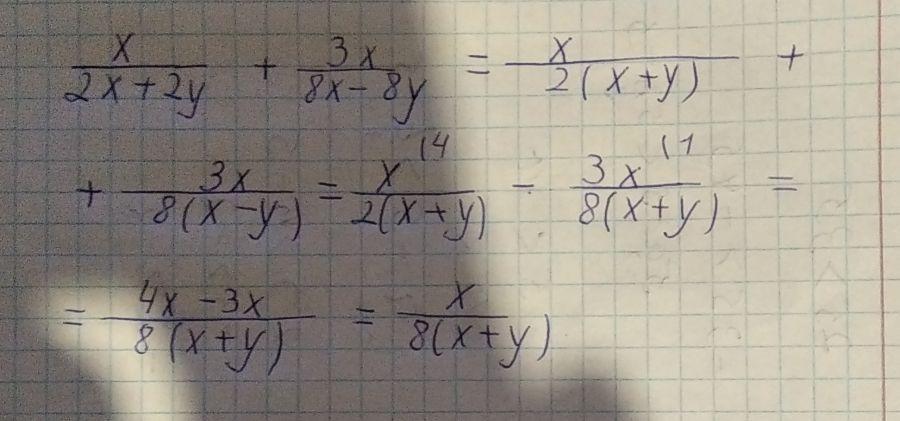 x/(2x+2y) + 3x/(8x-8y) = x/(2(x+y)) +
+ 3x/(8(x-y)) = x(4/(2(x+y)) - 3x(1/(8(x+y)) =
= (4x-3x)/(8(x+y)) = x/(8(x+y))